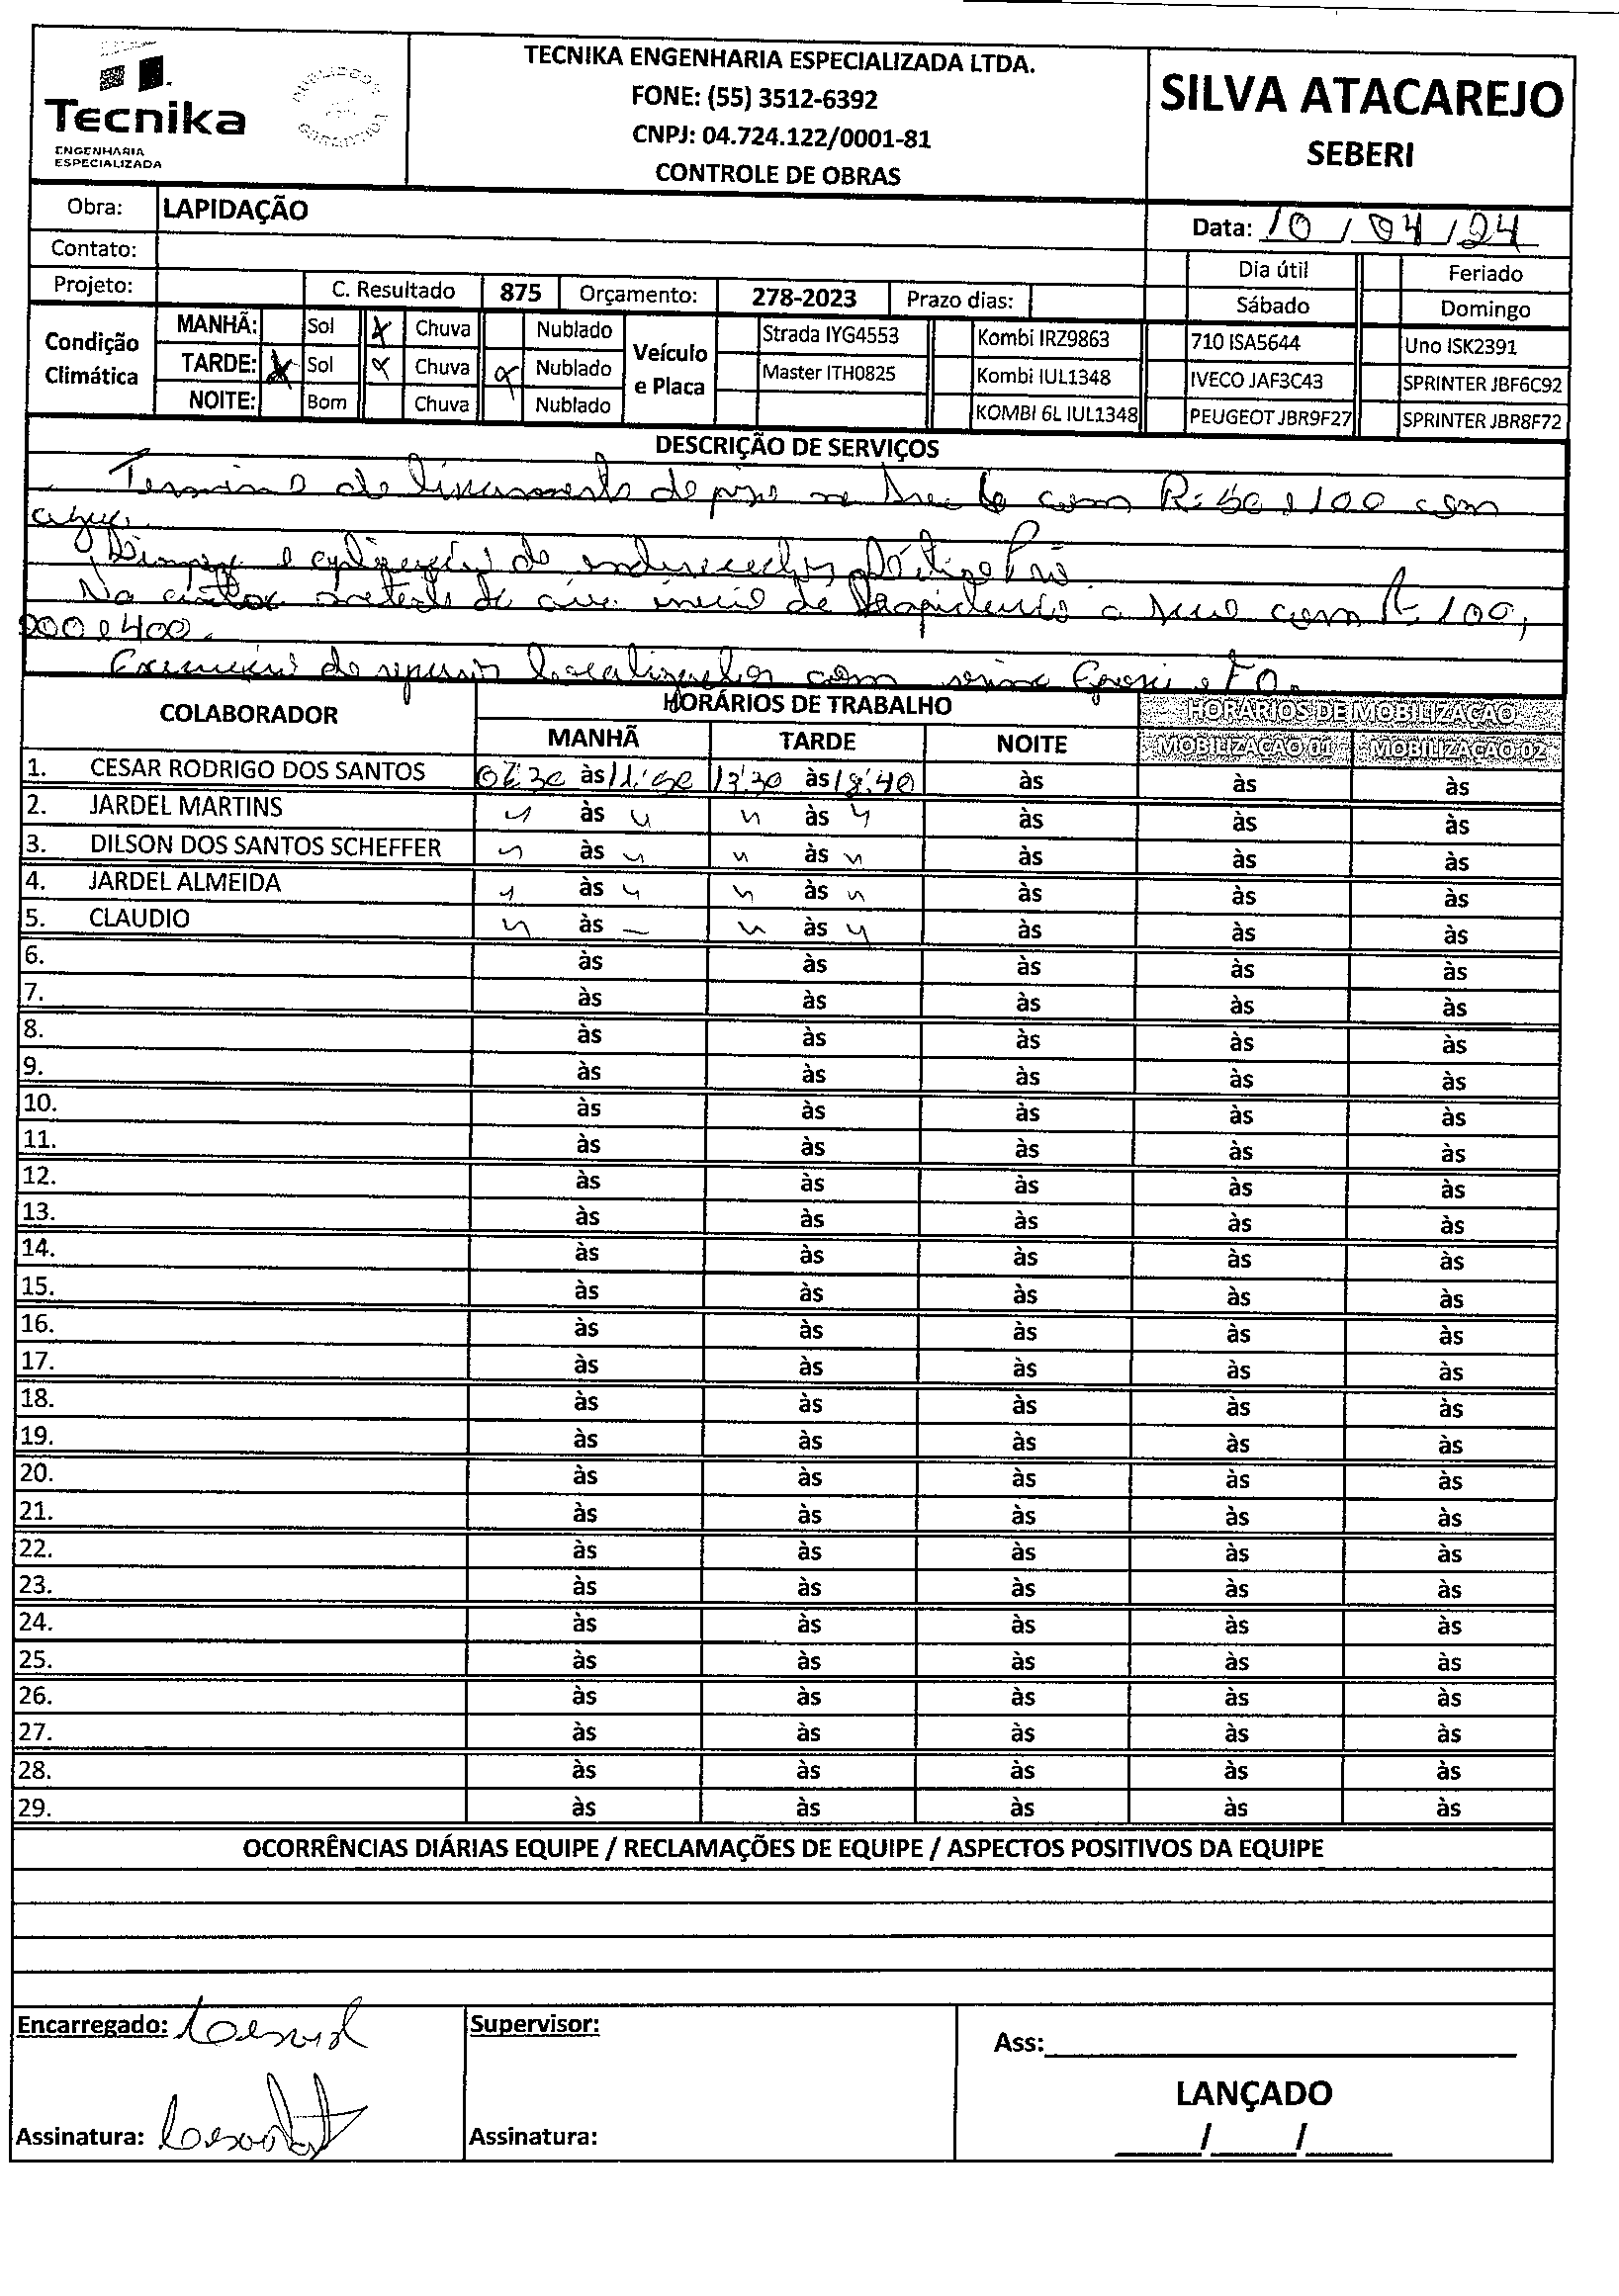 Tecnika
ENGENHARIA
ESPECIALIZADA
TECNIKA ENGENHARIA ESPECIALIZADA LTDA.
FONE: (55) 3512-6392
CNPJ: 04.724.122/0001-81
CONTROLE DE OBRAS
SILVA ATACAREJO
SEBERI
Obra: LAPIDAÇÃO
Data: 10 / 04 / 24
Contato:
Dia útil Feriado
Projeto: C. Resultado 875 Orçamento: 278-2023 Prazo dias:
Sábado Domingo
Condição Climática
MANHÃ: Sol X Chuva Nublado
TARDE: X Sol X Chuva X Nublado
NOITE: Bom Chuva Nublado
Veículo e Placa
Strada IYG4553 Kombi IRZ9863 710 ISA5644 Uno ISK2391
Master ITH0825 Kombi IUL1348 IVECO JAF3C43 SPRINTER JBF6C92
KOMBI 6L IUL1348 PEUGEOT JBR9F27 SPRINTER JBR8F72
DESCRIÇÃO DE SERVIÇOS
Termino de de piso com R: 50 e 100 com
agua.
e aplicação de
Na de inicial de a com R 100,
200 e 400.
Execução de localizados com e
COLABORADOR HORÁRIOS DE TRABALHO HORÁRIOS DE MOBILIZAÇÃO
MANHÃ TARDE NOITE MOBILIZAÇÃO 01 MOBILIZAÇÃO 02
1. CESAR RODRIGO DOS SANTOS às 13:30 às 18:40 às às às
2. JARDEL MARTINS " às " " às " às às às
3. DILSON DOS SANTOS SCHEFFER " às " " às " às às às
4. JARDEL ALMEIDA " às " " às " às às às
5. CLAUDIO " às " " às " às às às
6. às às às às às
7. às às às às às
8. às às às às às
9. às às às às às
10. às às às às às
11. às às às às às
12. às às às às às
13. às às às às às
14. às às às às às
15. às às às às às
16. às às às às às
17. às às às às às
18. às às às às às
19. às às às às às
20. às às às às às
21. às às às às às
22. às às às às às
23. às às às às às
24. às às às às às
25. às às às às às
26. às às às às às
27. às às às às às
28. às às às às às
29. às às às às às
OCORRÊNCIAS DIÁRIAS EQUIPE / RECLAMAÇÕES DE EQUIPE / ASPECTOS POSITIVOS DA EQUIPE
Encarregado:
Supervisor:
Ass:
LANÇADO
Assinatura:
Assinatura:
/ /